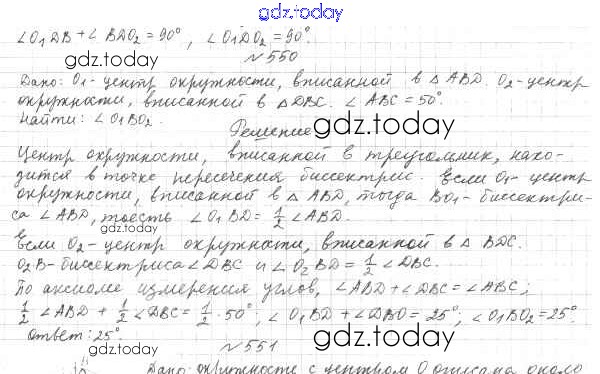 gdz.today
∠O₁DB + ∠BDO₂ = 90°, ∠O₁DO₂ = 90°.
gdz.today
№550
Дано: O₁-центр окружности, вписанной в △ABD. O₂-центр
окружности, вписанной в △DBC. ∠ABC = 50°.
Найти: ∠O₁BO₂.
gdz.today
Решение
Центр окружности, вписанной в треугольник, нахо-
дится в точке пересечения биссектрис. Если O₁-центр
gdz.today
окружности, вписанной в △ABD, тогда BO₁-биссектри-
са ∠ABD, тоесть ∠O₁BD = ½∠ABD.
gdz.today
Если O₂-центр окружности, вписанной в △BDC.
O₂B-биссектриса ∠DBC и ∠O₂BD = ½∠DBC.
gdz.today
По аксиоме измерения углов, ∠ABD + ∠DBC = ∠ABC;
½∠ABD + ½∠DBC = ½·50°; ∠O₁BD + ∠DBO = 25°; ∠O₁BO₂ = 25°.
Ответ: 25°.
gdz.today
gdz.today
№551
Дано: окружность с центром O описана около
gdz.today